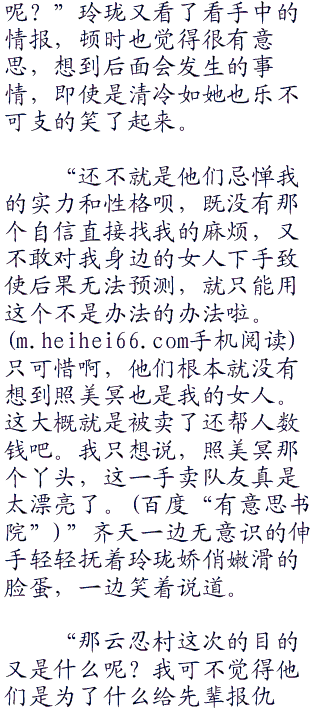 呢？”玲珑又看了看手中的
情报，顿时也觉得很有意
思，想到后面会发生的事
情，即使是清冷如她也乐不
可支的笑了起来。
“还不就是他们忌惮我
的实力和性格呗，既没有那
个自信直接找我的麻烦，又
不敢对我身边的女人下手致
使后果无法预测，就只能用
这个不是办法的办法啦。
(m.heihei66.com手机阅读)
只可惜啊，他们根本就没有
想到照美冥也是我的女人。
这大概就是被卖了还帮人数
钱吧。我只想说，照美冥那
个丫头，这一手卖队友真是
太漂亮了。(百度“有意思书
院”)”齐天一边无意识的伸
手轻轻抚着玲珑娇俏嫩滑的
脸蛋，一边笑着说道。
“那云忍村这次的目的
又是什么呢？我可不觉得他
们是为了什么给先辈报仇